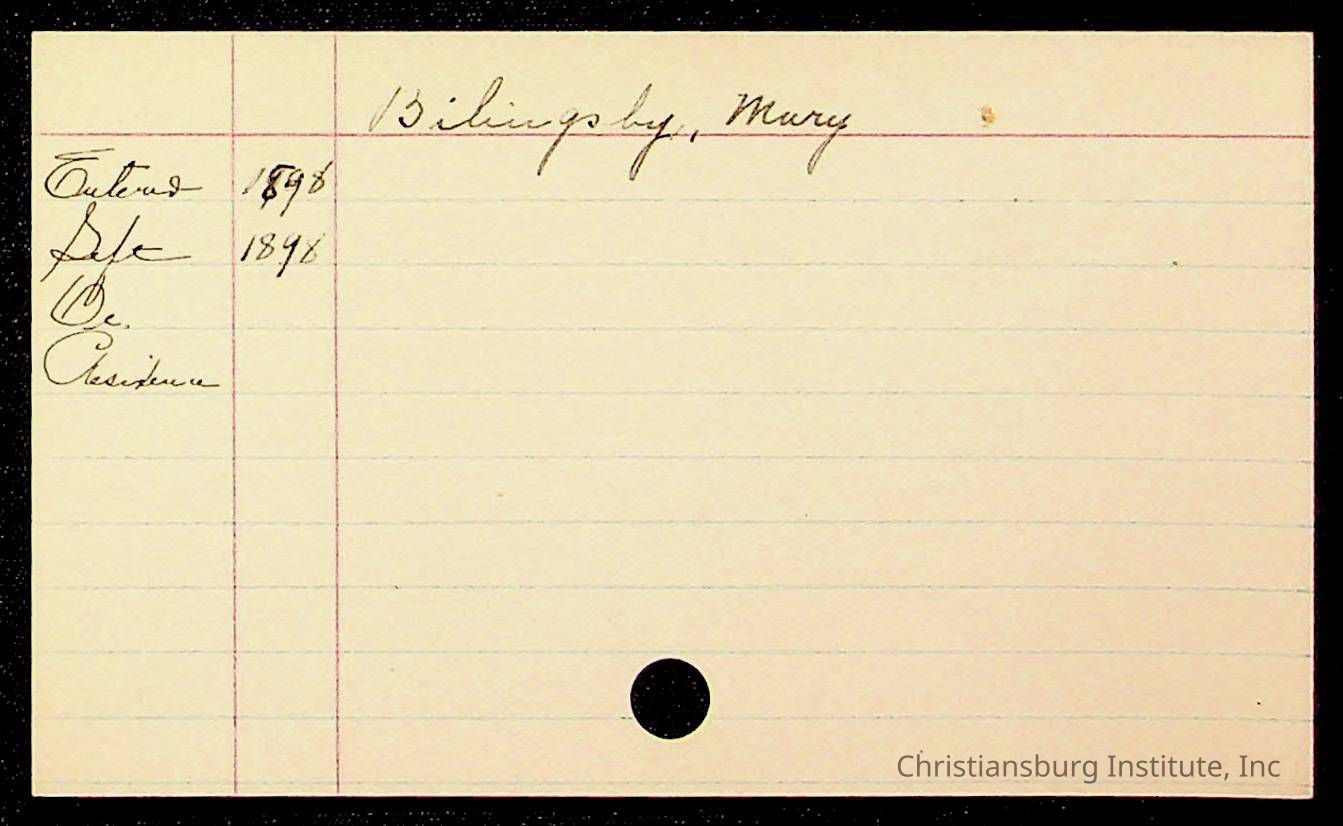 Bilingsby, Mary
Entered 1898
Left 1898
Oc.
Residence
Christiansburg Institute, Inc